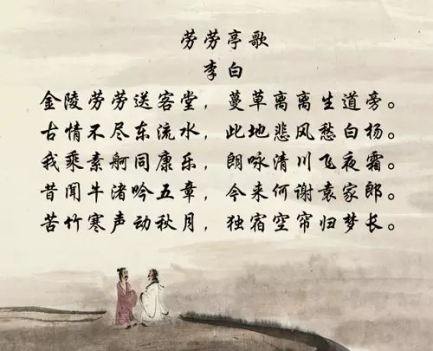 劳劳亭歌
李白
金陵劳劳送客堂，蔓草离离生道旁。
古情不尽东流水，此地悲风愁白杨。
我乘素舸同康乐，朗咏清川飞夜霜。
昔闻牛渚吟五章，今来何谢袁家郎。
苦竹寒声动秋月，独宿空帘归梦长。